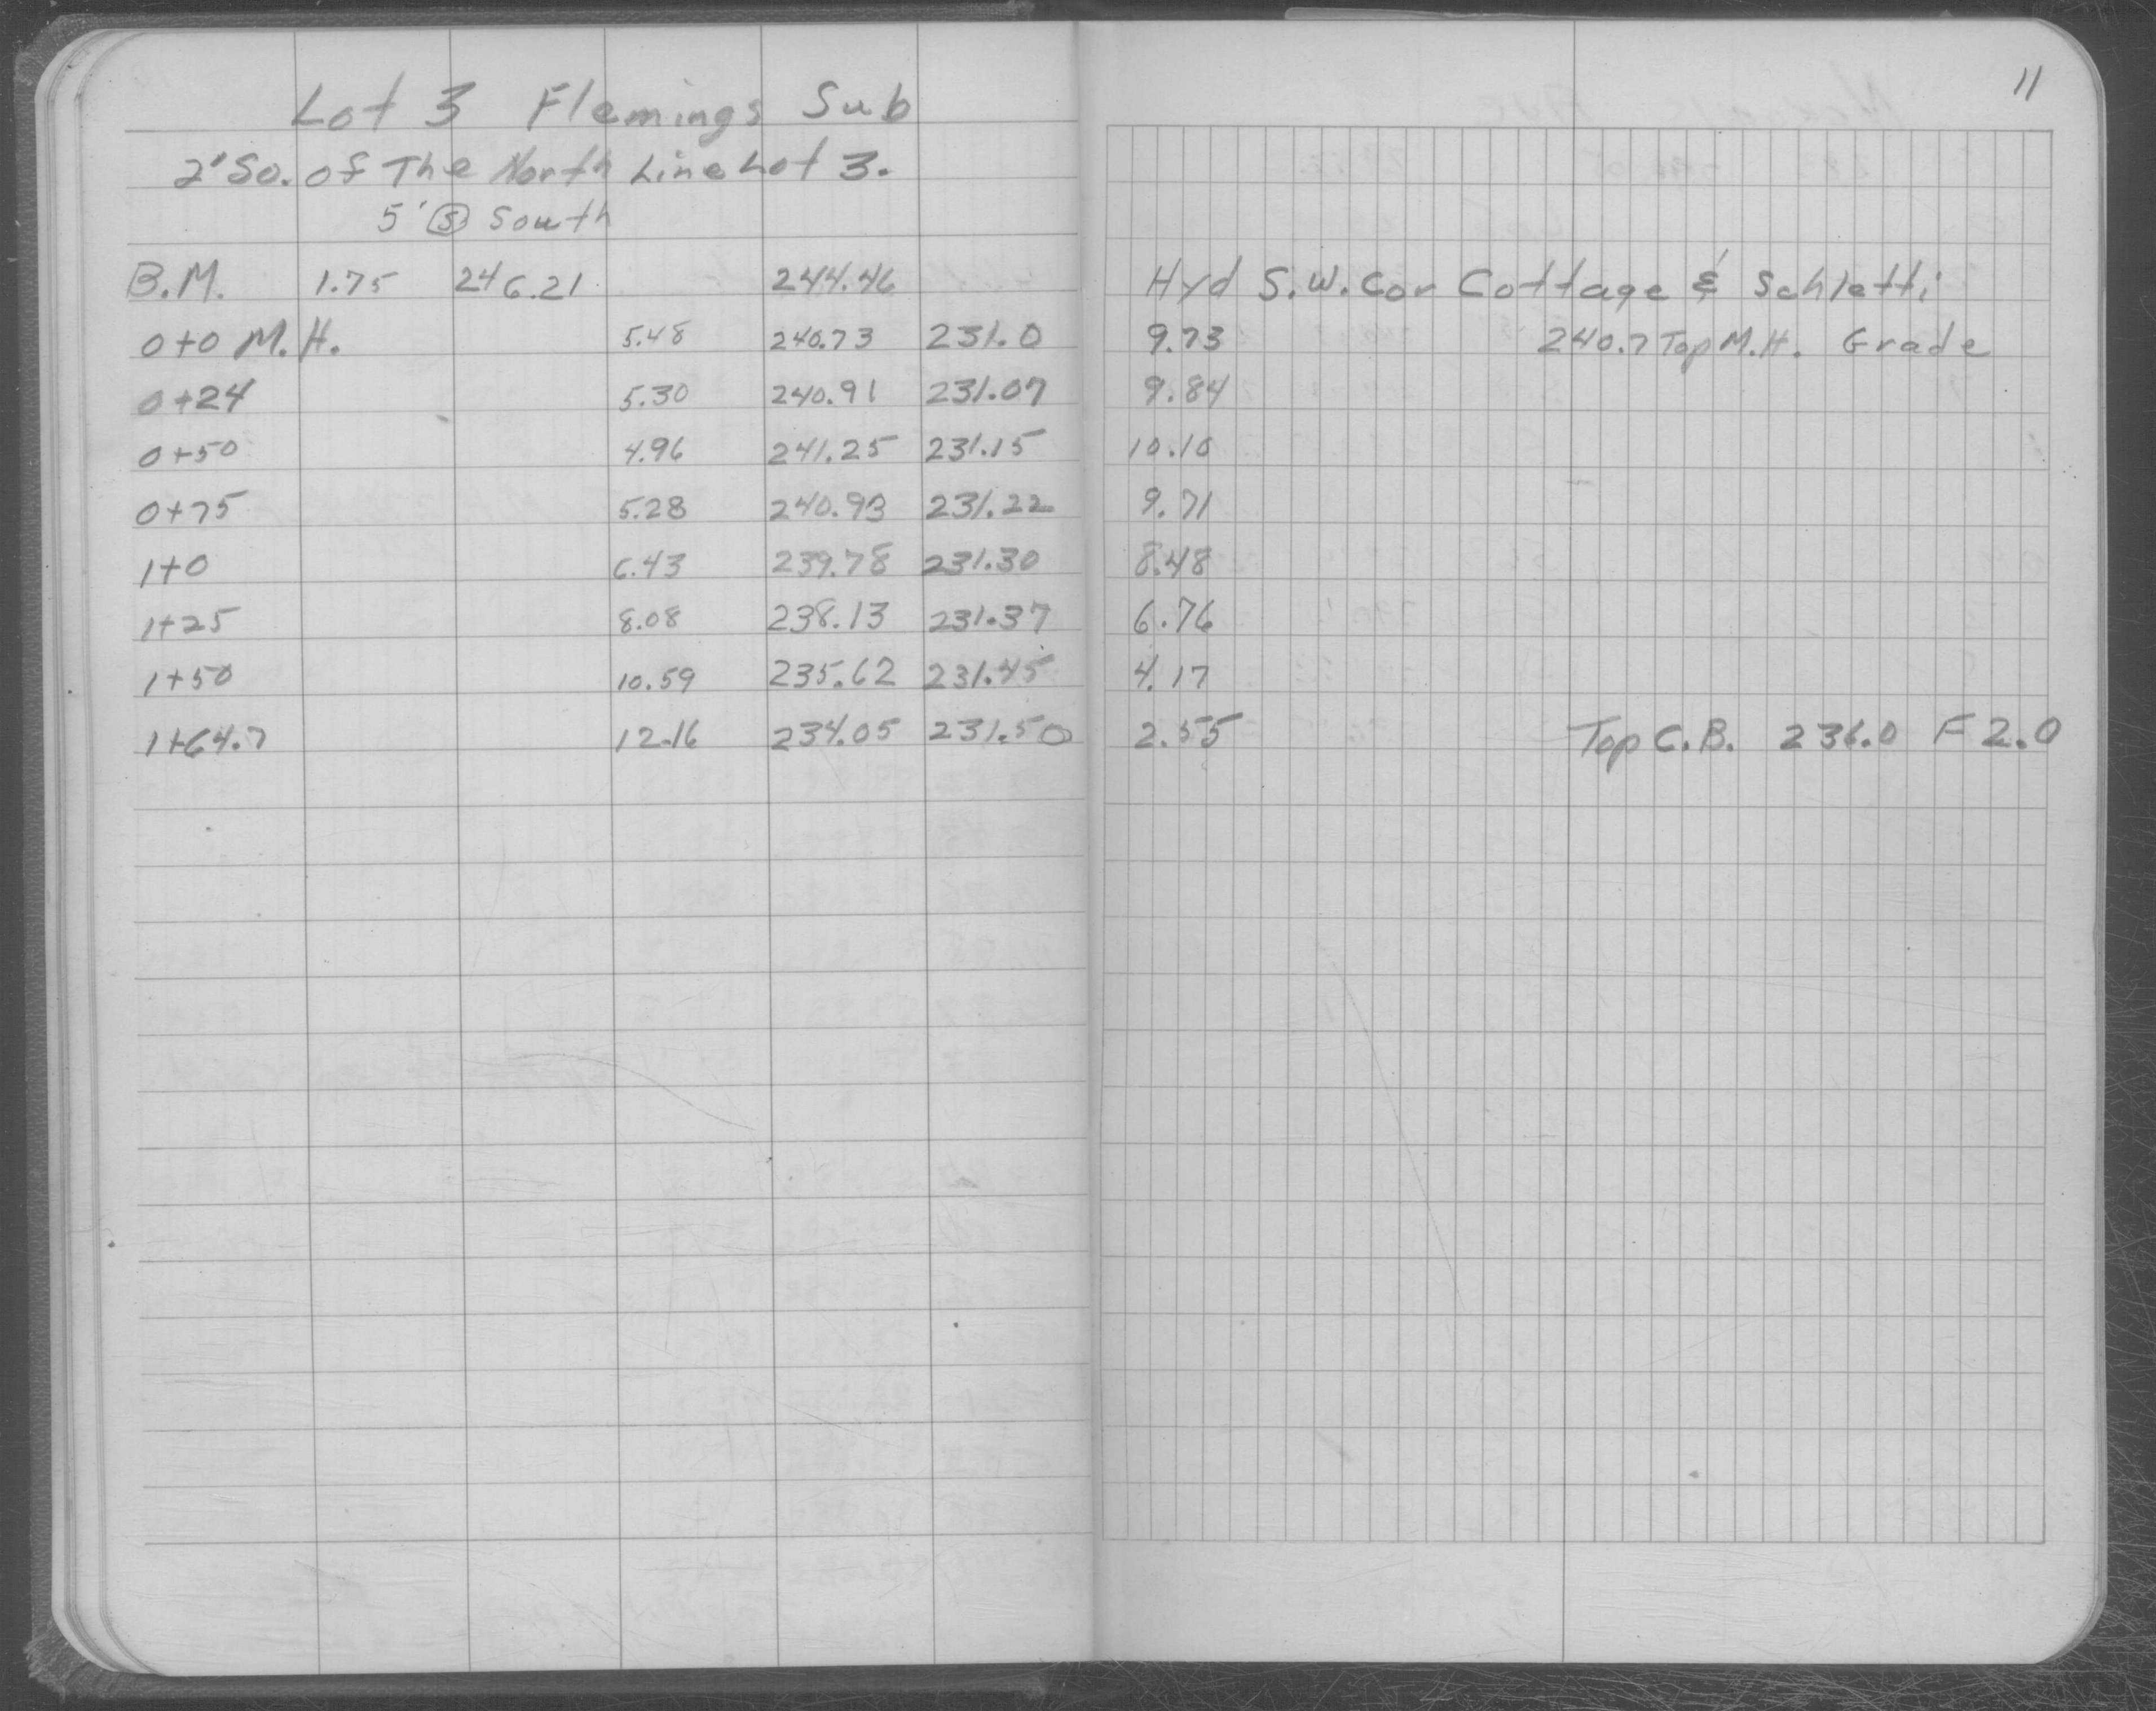 11
Lot 3 Flemings Sub
2' So. of The North Line Lot 3.
5' Ⓢ South
B.M. 1.75 246.21 244.46 Hyd S.W. Cor Cottage & Schletti
0+0 M.H. 5.48 240.73 231.0 9.73 240.7 Top M.H. Grade
0+24 5.30 240.91 231.07 9.84
0+50 4.96 241.25 231.15 10.10
0+75 5.28 240.93 231.22 9.71
1+0 6.43 239.78 231.30 8.48
1+25 8.08 238.13 231.37 6.76
1+50 10.59 235.62 231.45 4.17
1+64.7 12.16 234.05 231.50 2.55 Top C.B. 236.0 F 2.0